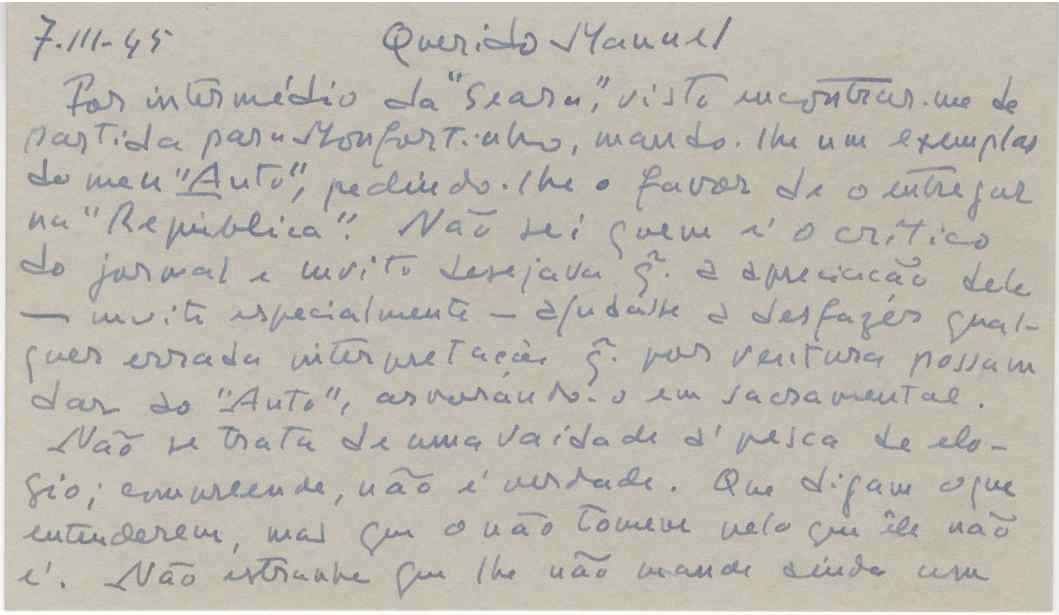 7.III-45 Querido Manuel
Por intermédio da "Seara", visto encontrar-me de
partida para Monfortinho, mando-lhe um exemplar
do meu "Auto", pedindo-lhe o favor de o entregar
na "República". Não sei quem é o crítico
do jornal e muito desejava q̃. a apreciação dele
— muito especialmente — ajudasse a desfazer qual-
quer errada interpretação q̃. por ventura possam
dar ao "Auto", arvorando-o em sacramental.
Não se trata de uma vaidade à pesca de elo-
gio; compreende, não é verdade. Que digam o que
entenderem, mas que o não tomem pelo que êle não
é. Não estranhe que lhe não mande ainda um